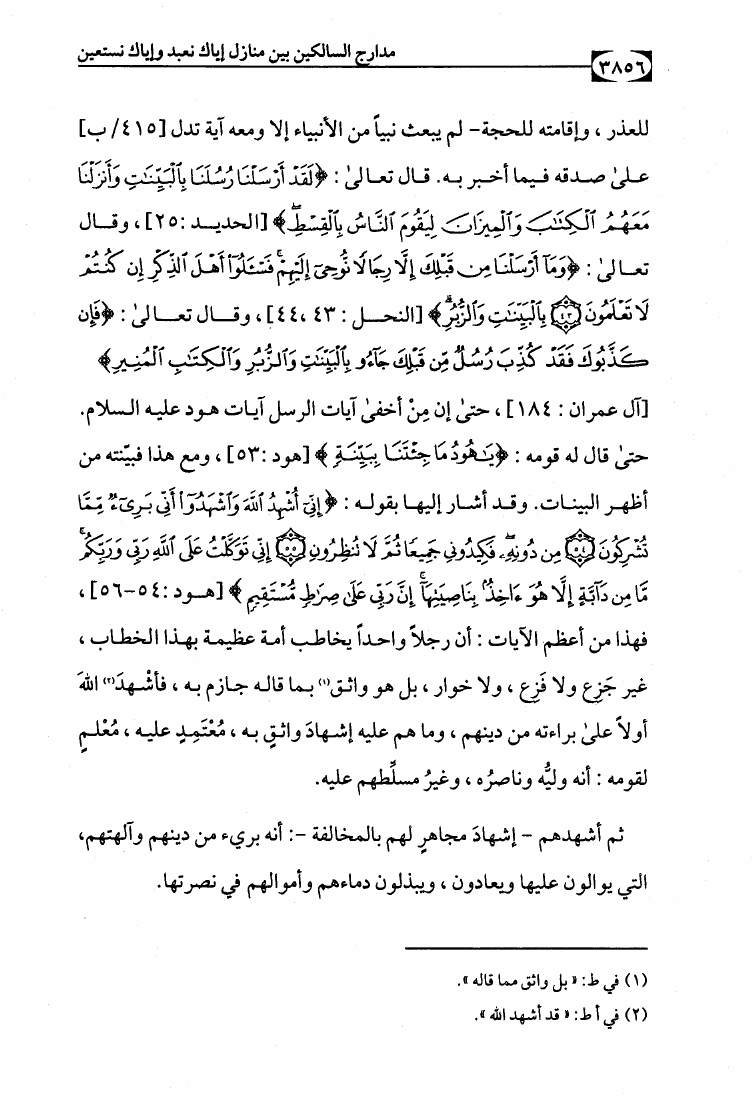 ٣٨٥٦
مدارج السالكين بين منازل إياك نعبد وإياك نستعين
للعذر ، وإقامته للحجة- لم يبعث نبياً من الأنبياء إلا ومعه آية تدل [٤١٥/ ب]
علىٰ صدقه فيما أخبر به. قال تعالىٰ : ﴿لَقَدْ أَرْسَلْنَا رُسُلَنَا بِٱلْبَيِّنَٰتِ وَأَنزَلْنَا
مَعَهُمُ ٱلْكِتَٰبَ وَٱلْمِيزَانَ لِيَقُومَ ٱلنَّاسُ بِٱلْقِسْطِۖ﴾ [الحديد :٢٥] ، وقال
تعالىٰ : ﴿وَمَآ أَرْسَلْنَا مِن قَبْلِكَ إِلَّا رِجَالًا نُّوحِىٓ إِلَيْهِمْۚ فَسْـَٔلُوٓا۟ أَهْلَ ٱلذِّكْرِ إِن كُنتُمْ
لَا تَعْلَمُونَ ۝٤٣ بِٱلْبَيِّنَٰتِ وَٱلزُّبُرِۗ﴾ [النحل : ٤٣ ،٤٤] ، وقال تعالىٰ : ﴿فَإِن
كَذَّبُوكَ فَقَدْ كُذِّبَ رُسُلٌ مِّن قَبْلِكَ جَآءُو بِٱلْبَيِّنَٰتِ وَٱلزُّبُرِ وَٱلْكِتَٰبِ ٱلْمُنِيرِ﴾
[آل عمران : ١٨٤] ، حتىٰ إن مِنْ أخفىٰ آيات الرسل آيات هود عليه السلام.
حتىٰ قال له قومه : ﴿يَٰهُودُ مَا جِئْتَنَا بِبَيِّنَةٍ﴾ [هود :٥٣] ، ومع هذا فبيّنته من
أظهر البينات. وقد أشار إليها بقوله : ﴿إِنِّىٓ أُشْهِدُ ٱللَّهَ وَٱشْهَدُوٓا۟ أَنِّى بَرِىٓءٌ مِّمَّا
تُشْرِكُونَ ۝٥٤ مِن دُونِهِۦۖ فَكِيدُونِى جَمِيعًا ثُمَّ لَا تُنظِرُونِ ۝٥٥ إِنِّى تَوَكَّلْتُ عَلَى ٱللَّهِ رَبِّى وَرَبِّكُمۚ
مَّا مِن دَآبَّةٍ إِلَّا هُوَ ءَاخِذٌۢ بِنَاصِيَتِهَآۚ إِنَّ رَبِّى عَلَىٰ صِرَٰطٍ مُّسْتَقِيمٍ﴾ [هود :٥٤-٥٦] ،
فهذا من أعظم الآيات : أن رجلاً واحداً يخاطب أمة عظيمة بهذا الخطاب ،
غير جَزِع ولا فَزِع ، ولا خوار ، بل هو واثق(١) بما قاله جازم به ، فأشْهدَ(٢) اللهَ
أولاً علىٰ براءته من دينهم ، وما هم عليه إشهادَ واثقٍ به ، مُعْتَمِدٍ عليه ، مُعْلمٍ
لقومه : أنه وليُّه وناصرُه ، وغيرُ مسلِّطهم عليه.
ثم أشهدهم - إشهادَ مجاهرٍ لهم بالمخالفة -: أنه بريء من دينهم وآلهتهم،
التي يوالون عليها ويعادون ، ويبذلون دماءهم وأموالهم في نصرتها.
(١) في ط: « بل واثق مما قاله ».
(٢) في أ ط: « قد أشهد الله ».